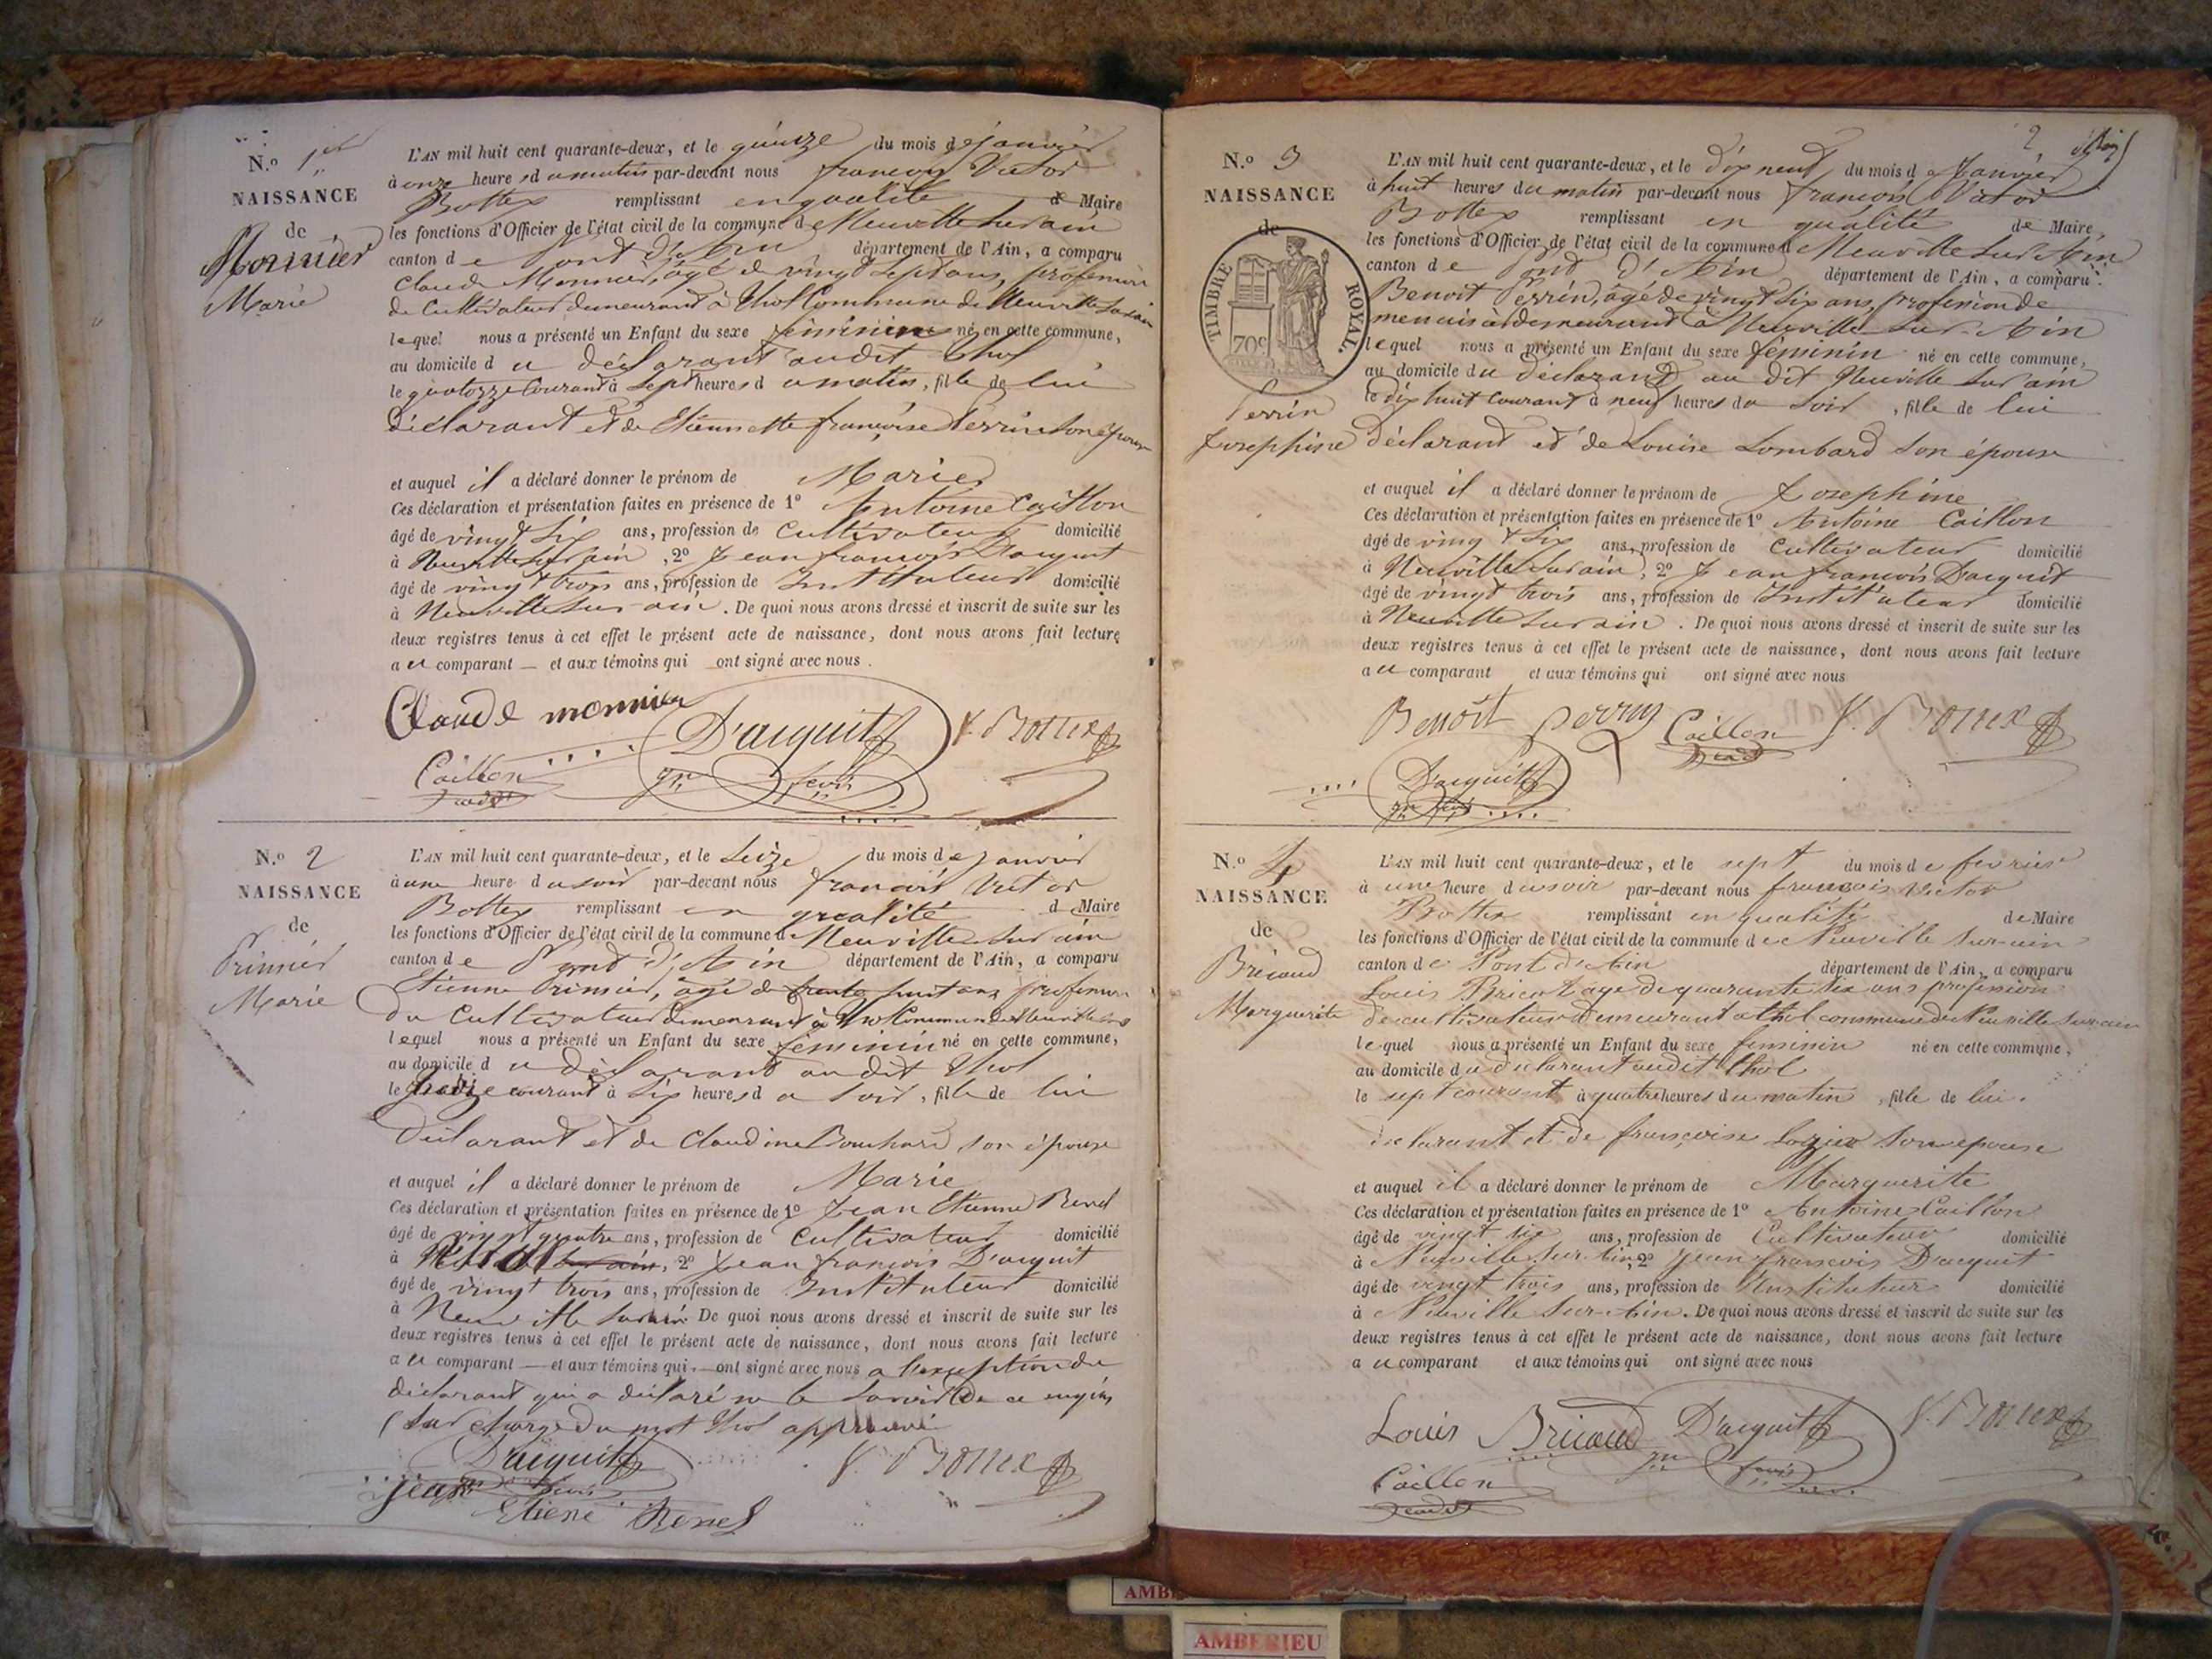 N.o 1er
NAISSANCE
de
Monnier
Marie
L'AN mil huit cent quarante-deux, et le quinze du mois de janvier
à onze heures du matin par-devant nous françois Victor
Bottex remplissant en qualité de Maire
les fonctions d'Officier de l'état civil de la commune de Neuville sur ain
canton de Pont d'ain département de l'Ain, a comparu
Claude Monnier, âgé de vingt sept ans, profession
de Cultivateur demeurant à Thol Commune de Neuville sur ain
lequel nous a présenté un Enfant du sexe féminin né en cette commune,
au domicile du déclarant audit Thol
le quatorze Courant à sept heures du matin, fille de lui
déclarant et de Etiennette françoise Perrin son épouse
et auquel il a déclaré donner le prénom de Marie
Ces déclaration et présentation faites en présence de 1o Antoine Caillon
âgé de vingt Six ans, profession de Cultivateur domicilié
à Neuville sur ain, 2o Jean françois D'acquit
âgé de vingt trois ans, profession de Instituteur domicilié
à Neuville sur ain. De quoi nous avons dressé et inscrit de suite sur les
deux registres tenus à cet effet le présent acte de naissance, dont nous avons fait lecture
au comparant — et aux témoins qui ont signé avec nous.
Claude monnier D'acquit V. Bottex
Caillon jn fcois
N.o 2
NAISSANCE
de
Primier
Marie
L'AN mil huit cent quarante-deux, et le Seize du mois de janvier
à une heure du soir par-devant nous françois Victor
Bottex remplissant en qualité d Maire
les fonctions d'Officier de l'état civil de la commune d Neuville sur ain
canton de Pont d'Ain département de l'Ain, a comparu
Etienne Primier, âgé de trente huit ans profession
de Cultivateur demeurant à Thol Commune de Neuville sur
lequel nous a présenté un Enfant du sexe féminin né en cette commune,
au domicile du déclarant au dit Thol
le courant à Six heures du Soir, fille de lui
Déclarant et de Claudine Bouchard son épouse
et auquel il a déclaré donner le prénom de Marie
Ces déclaration et présentation faites en présence de 1o Jean Etienne Renel
âgé de vingt quatre ans, profession de Cultivateur domicilié
à Thol, 2o Jean françois D'acquit
âgé de vingt trois ans, profession de Instituteur domicilié
à Neuville sur ain De quoi nous avons dressé et inscrit de suite sur les
deux registres tenus à cet effet le présent acte de naissance, dont nous avons fait lecture
au comparant — et aux témoins qui ont signé avec nous a l'exception du
déclarant qui a déclaré ne le savoir de ce enquis
(Sur charge du mot Thol approuvé
D'acquit V. Bottex
jean
Etiene Renel
2
N.o 3
NAISSANCE
de
TIMBRE ROYAL.
70c
Perrin
Josephine
L'AN mil huit cent quarante-deux, et le dix neuf du mois de Janvier
à huit heures du matin par-devant nous françois Victor
Bottex remplissant en qualité de Maire
les fonctions d'Officier de l'état civil de la commune d Neuville sur Ain
canton de Pont d'Ain département de l'Ain, a comparu
Benoit Perrin, âgé de vingt six ans, profession de
menuisier demeurant à Neuville Sur-Ain
lequel nous a présenté un Enfant du sexe féminin né en cette commune,
au domicile du déclarant au dit Neuville Sur ain
le dix huit Courant à neuf heures du Soir, fille de lui
déclarant et de Louise Lombard son épouse
et auquel il a déclaré donner le prénom de Josephine
Ces déclaration et présentation faites en présence de 1o Antoine Caillon
âgé de vingt Six ans, profession de Cultivateur domicilié
à Neuville sur ain, 2o Jean françois D'acquit
âgé de vingt trois ans, profession de Instituteur domicilié
à Neuville sur ain. De quoi nous avons dressé et inscrit de suite sur les
deux registres tenus à cet effet le présent acte de naissance, dont nous avons fait lecture
au comparant et aux témoins qui ont signé avec nous
Benoît perrin Caillon V. Bottex
D'acquit
jn fcois
N.o 4
NAISSANCE
de
Bricaud
Marguerite
L'AN mil huit cent quarante-deux, et le sept du mois de fevrier
à une heure du soir par-devant nous françois Victor
Bottex remplissant en qualité de Maire
les fonctions d'Officier de l'état civil de la commune de Neuville Sur-ain
canton de Pont d'Ain département de l'Ain, a comparu
Louis Bricaud age de quarante six ans profession
de cultivateur demeurant a thol commune de Neuville Sur-ain
lequel nous a présenté un Enfant du sexe feminin né en cette commune,
au domicile du declarant audit thol
le sept courant à quatre heures du matin, fille de lui.
declarant et de françoise Logier son epouse
et auquel il a déclaré donner le prénom de Marguerite
Ces déclaration et présentation faites en présence de 1o Antoine Caillon
âgé de vingt six ans, profession de Cultivateur domicilié
à Neuville Sur Ain, 2o Jean françois D'acquit
âgé de vingt trois ans, profession de Instituteur domicilié
à Neuville Sur-Ain. De quoi nous avons dressé et inscrit de suite sur les
deux registres tenus à cet effet le présent acte de naissance, dont nous avons fait lecture
au comparant et aux témoins qui ont signé avec nous
Louis Bricaud D'acquit V. Bottex
Caillon jn fcois
AMBERIEU